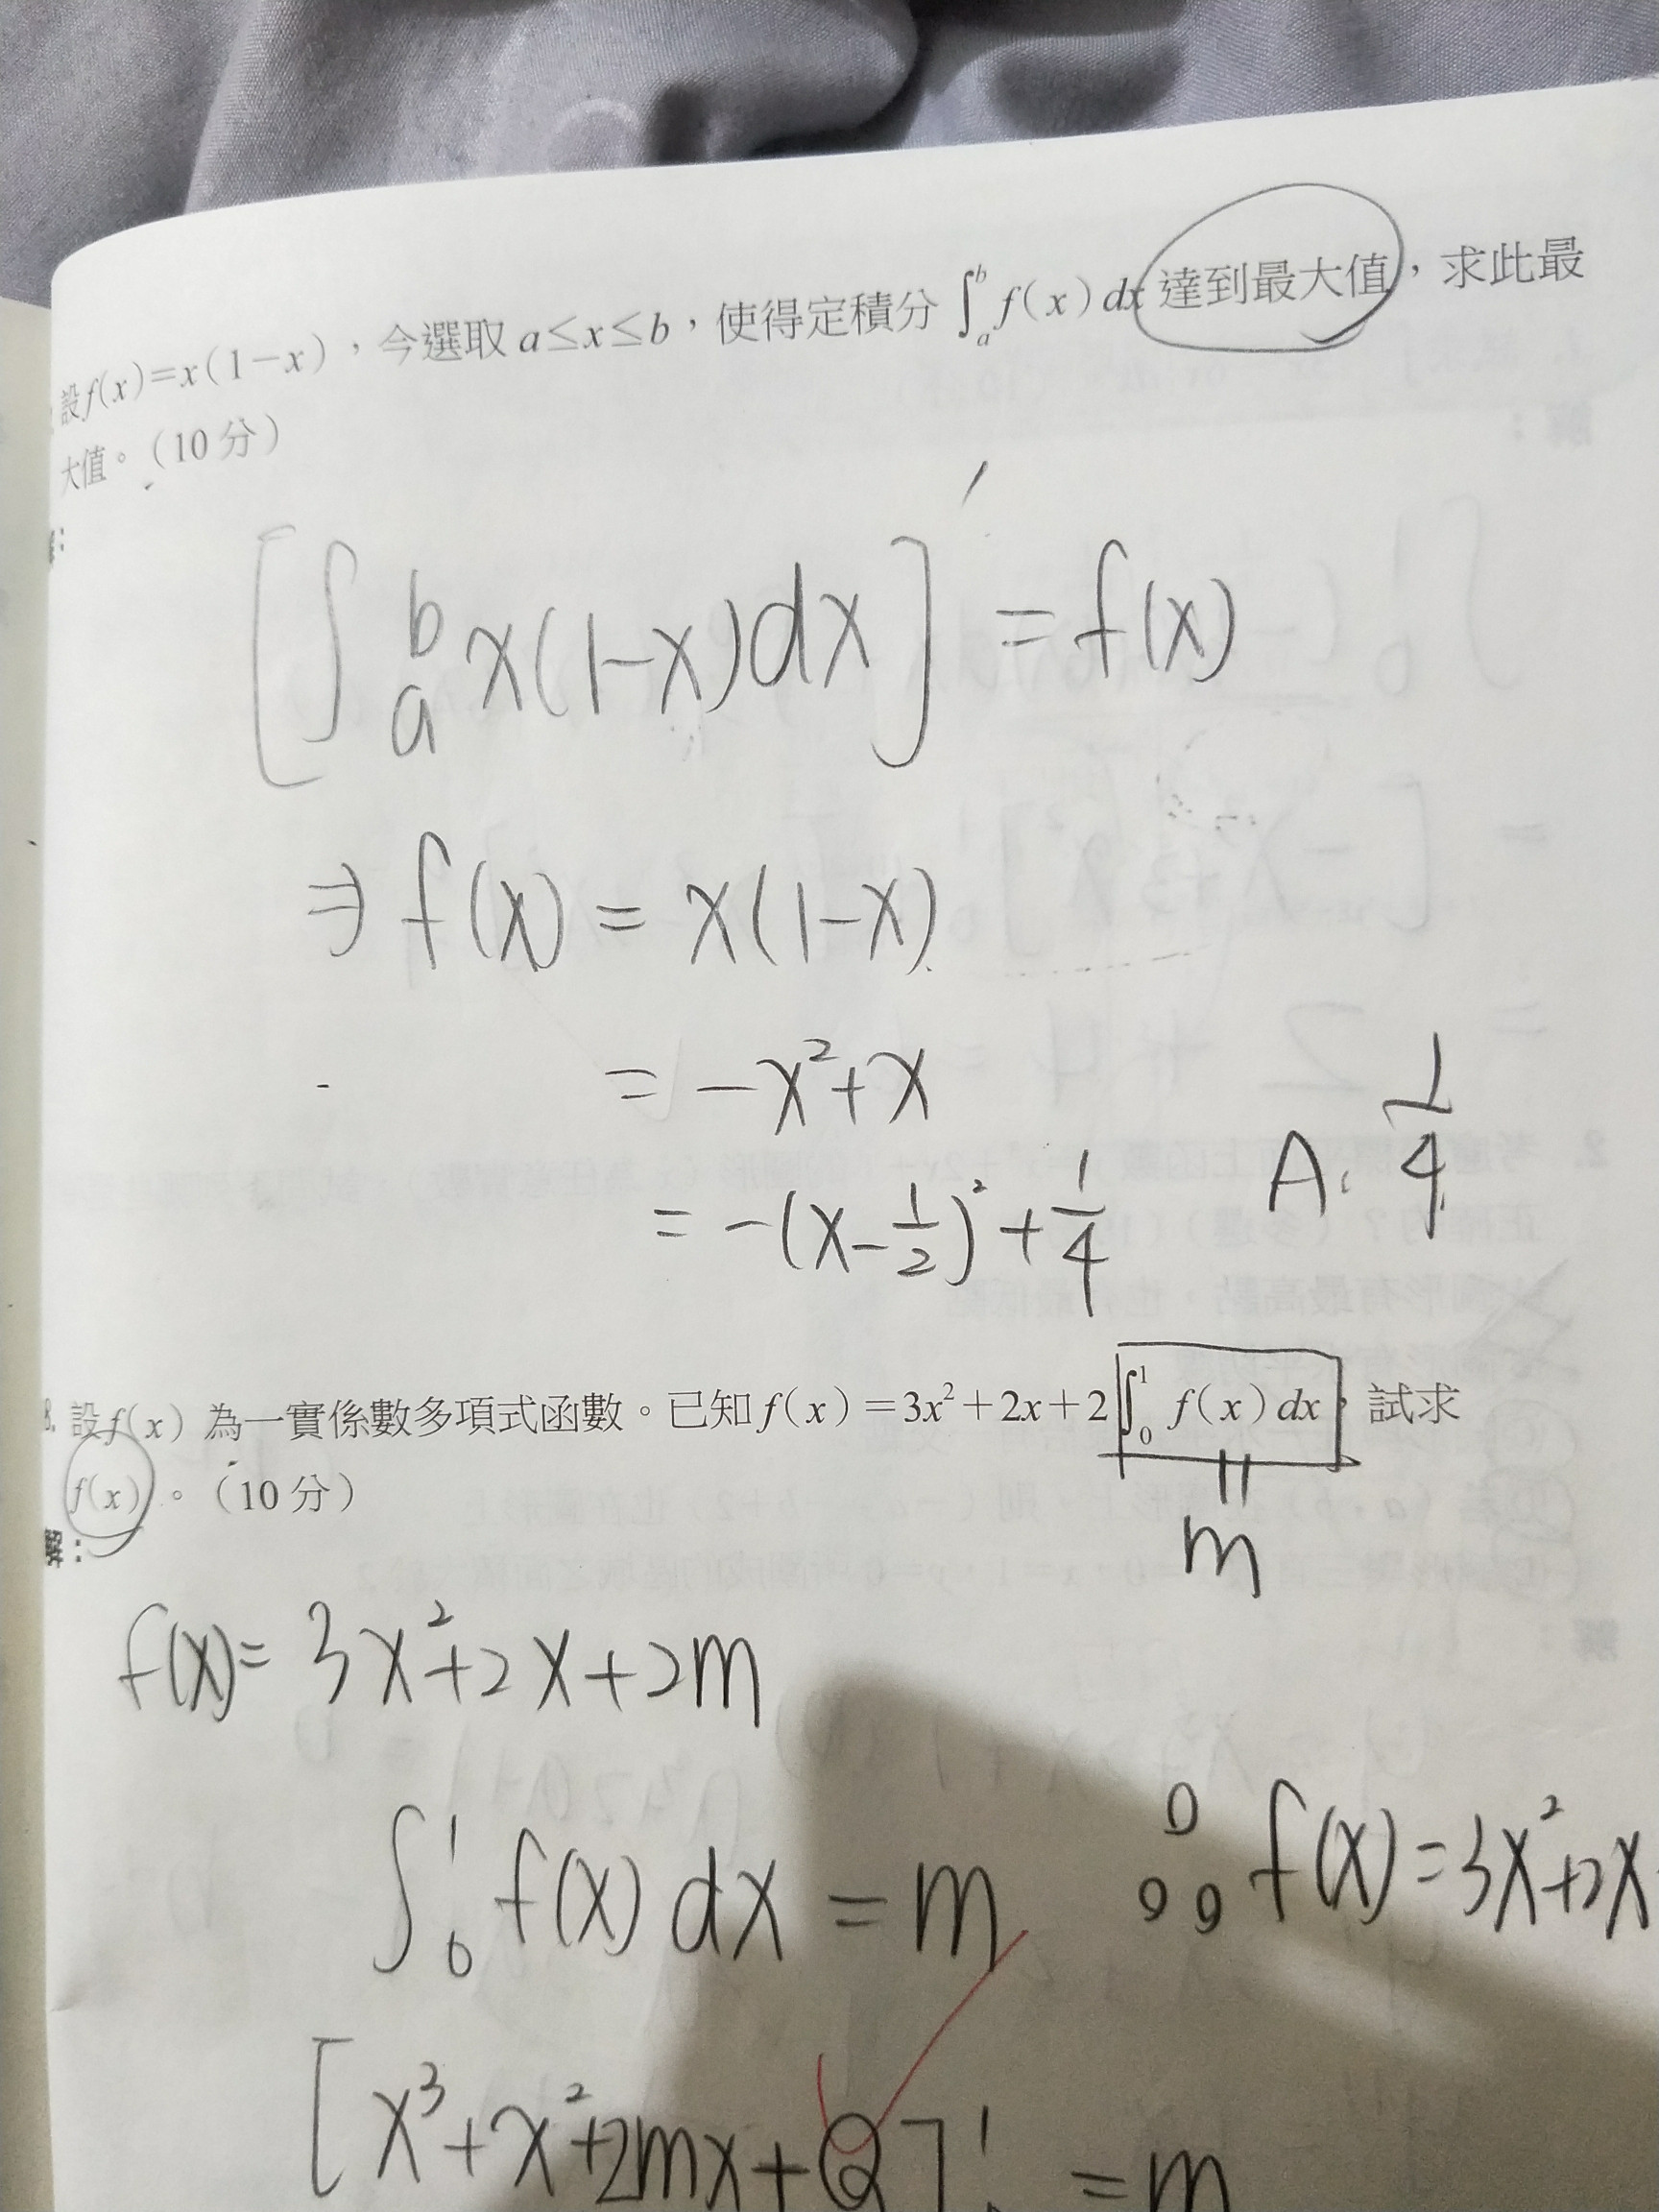 設f(x)=x(1-x),今選取a≤x≤b,使得定積分∫_a^b f(x)dx達到最大值,求此最
大值。(10分)
[∫_a^b x(1-x)dx]' = f(x)
⇒ f(x) = x(1-x)
= -x²+x
= -(x-1/2)²+1/4
A. 1/4
8. 設f(x)為一實係數多項式函數。已知f(x)=3x²+2x+2∫_0^1 f(x)dx,試求
f(x)。(10分)
= m
解:
f(x)= 3x²+2x+2m
∫_0^1 f(x)dx = m
∴ f(x)=3x²+2x
[x³+x²+2mx+ ]_0^1 = m